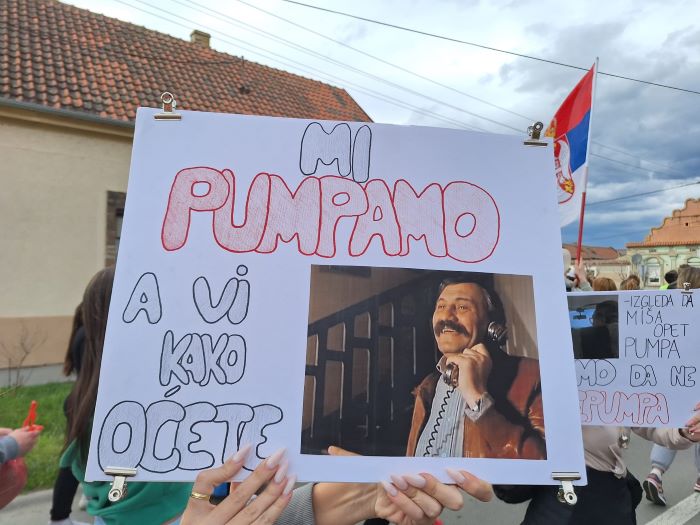 MI
PUMPAMO
A VI
KAKO
OĆETE
-IZGLEDA TA
MIŠA
OPET
PUMPA
MO DA NE
PUMPA